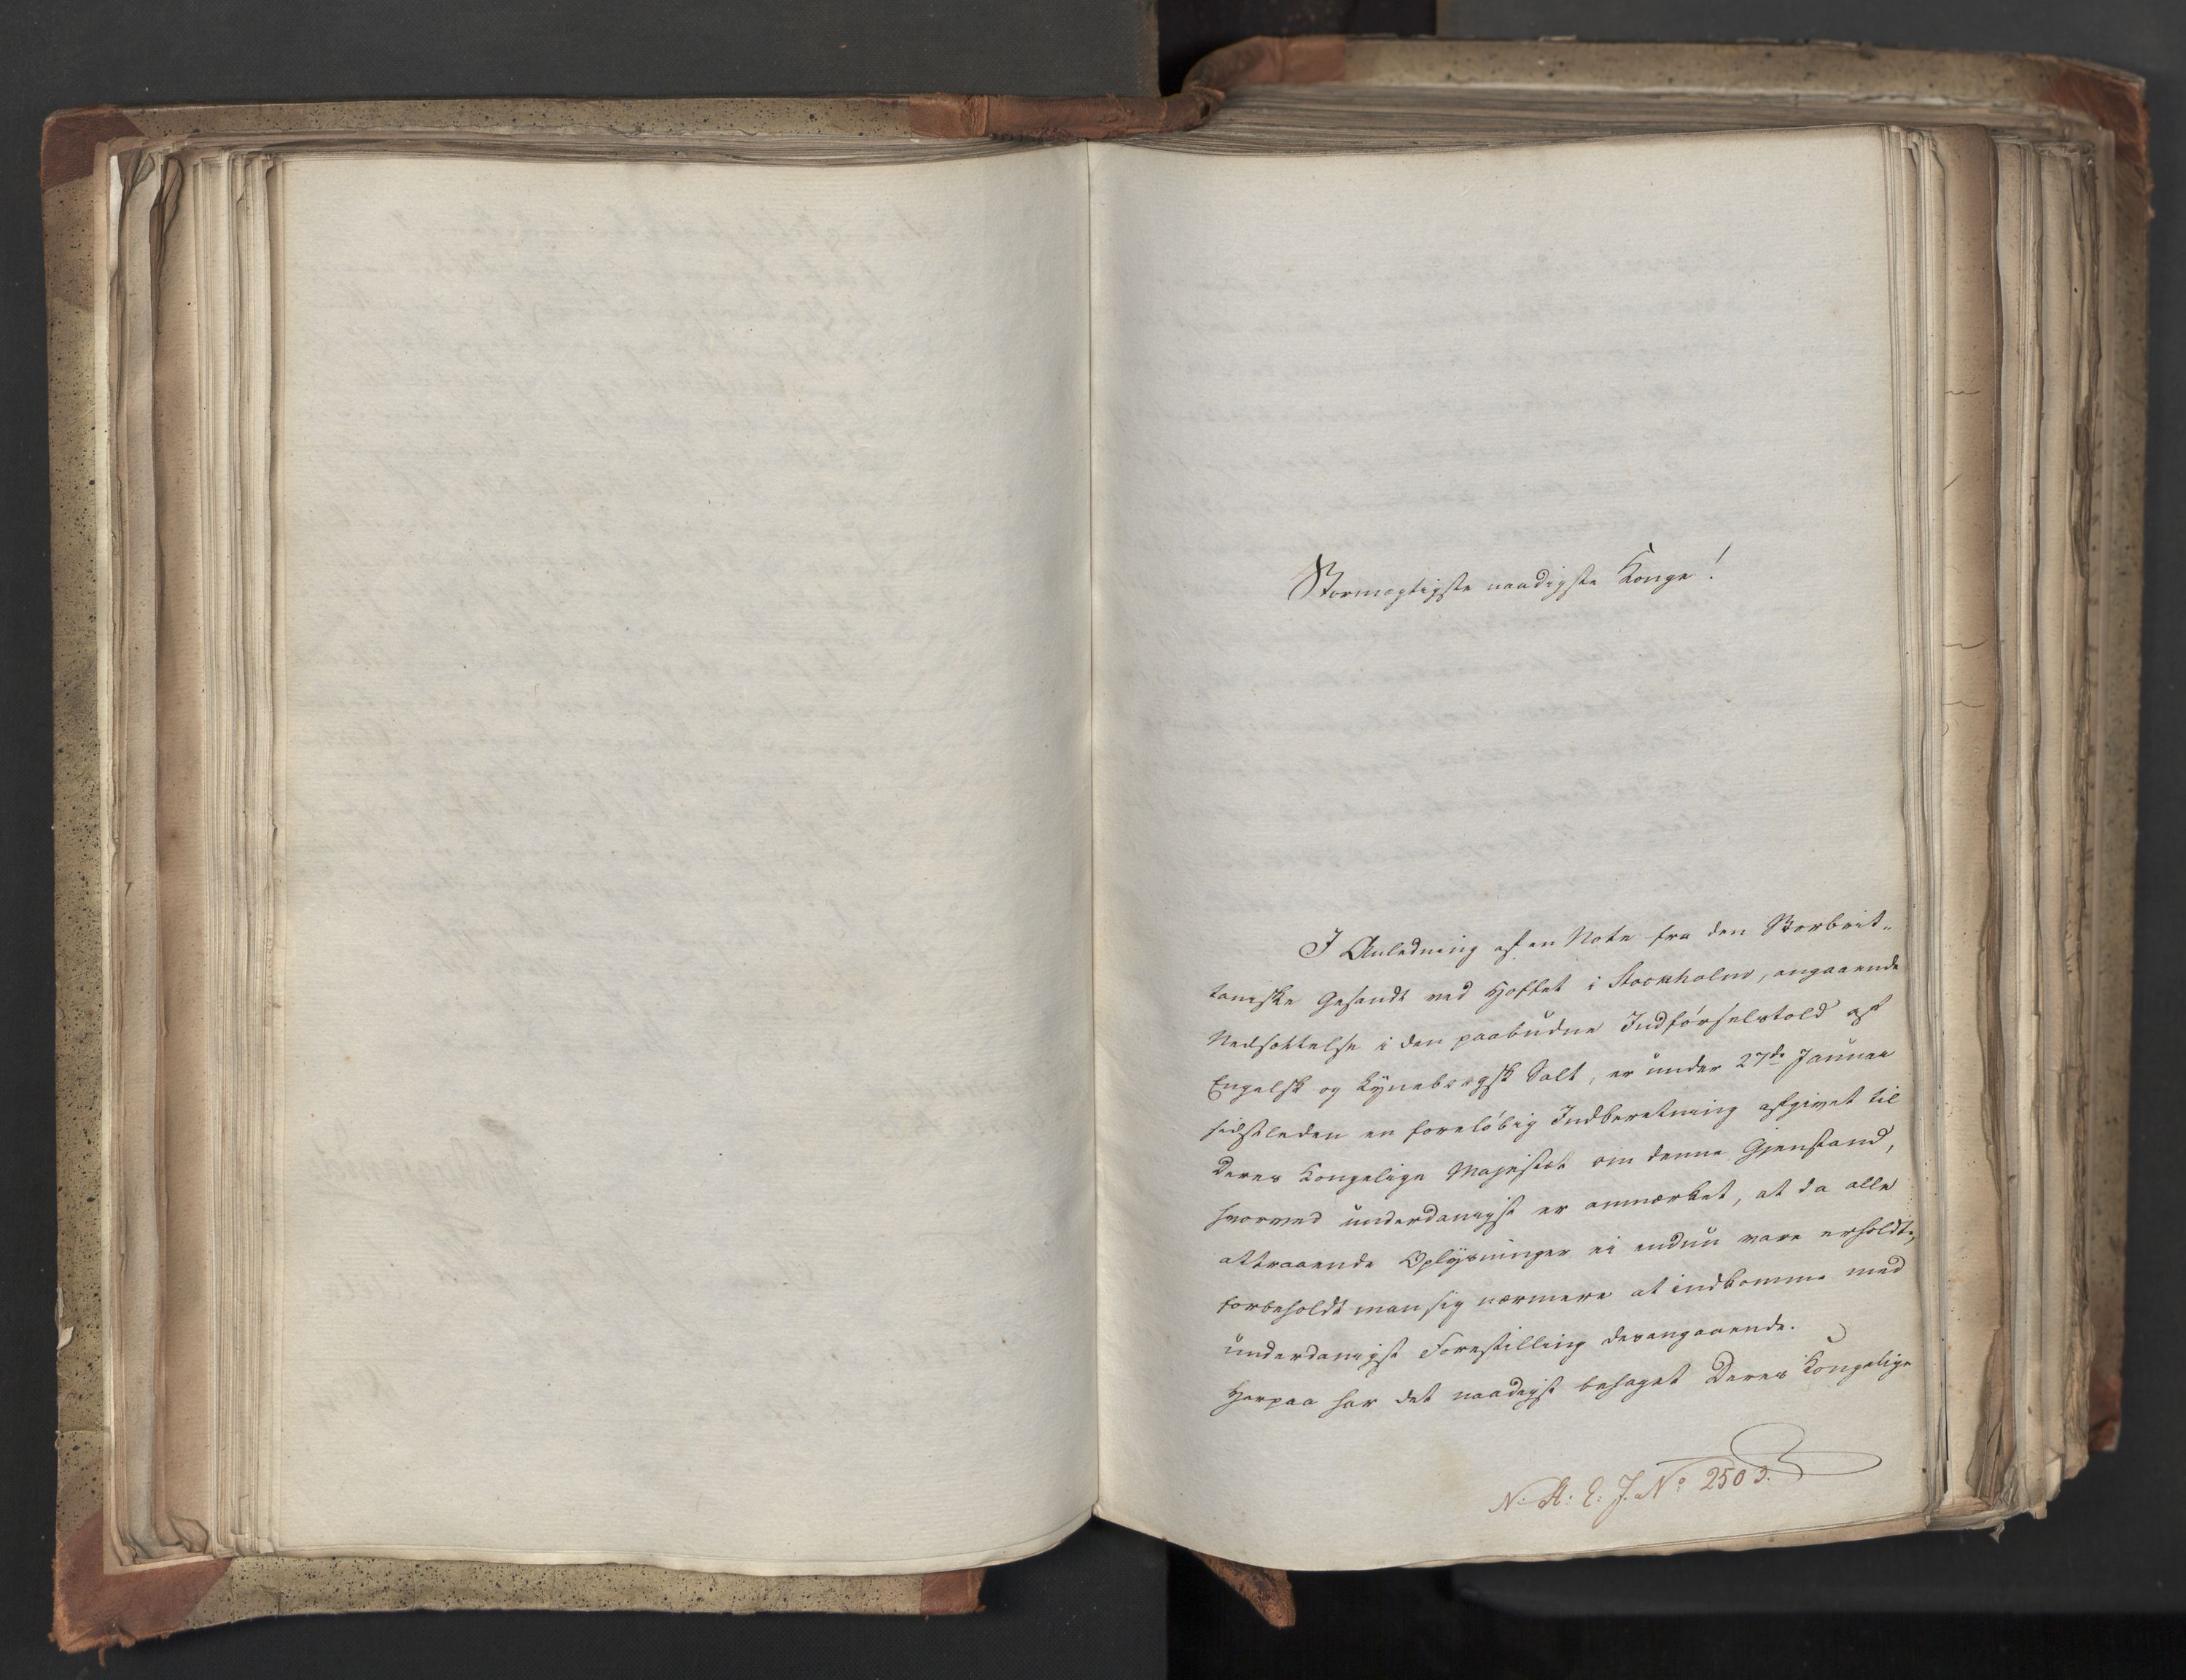 Stormægtigste naadigste Konge!
I Anledning af en Note fra den Storbrit-
taniske Gesandt ved Hoffet i Stockholm, angaaende
Nedsættelse i den paabudne Indførselstold af
Engelsk og Lyneborgsk Salt, er under 27de Januar
sidstleden en foreløbig Indberetning afgivet til
Deres Kongelige Majestæt om denne Gjenstand,
hvorved underdanigst er anmærket, at da alle
attraaende Oplysninger ei endnu vare erholdte,
forbeholdt man sig nærmere at indkomme med
underdanigst Forestilling desangaaende.
Herpaa har det naadigst behaget Deres Kongelige
N: A: E: J. No: 2503.